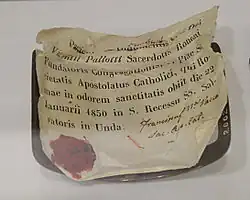 Vincentii Pallotti Sacerdotis Romani
Fundatoris Congregationis Piae S
cietatis Apostolatus Catholici, qui Ro
mae in odorem sanctitatis obiit die 22
Januarii 1850 in S. Recessu SS. Sal
vatoris in Unda.